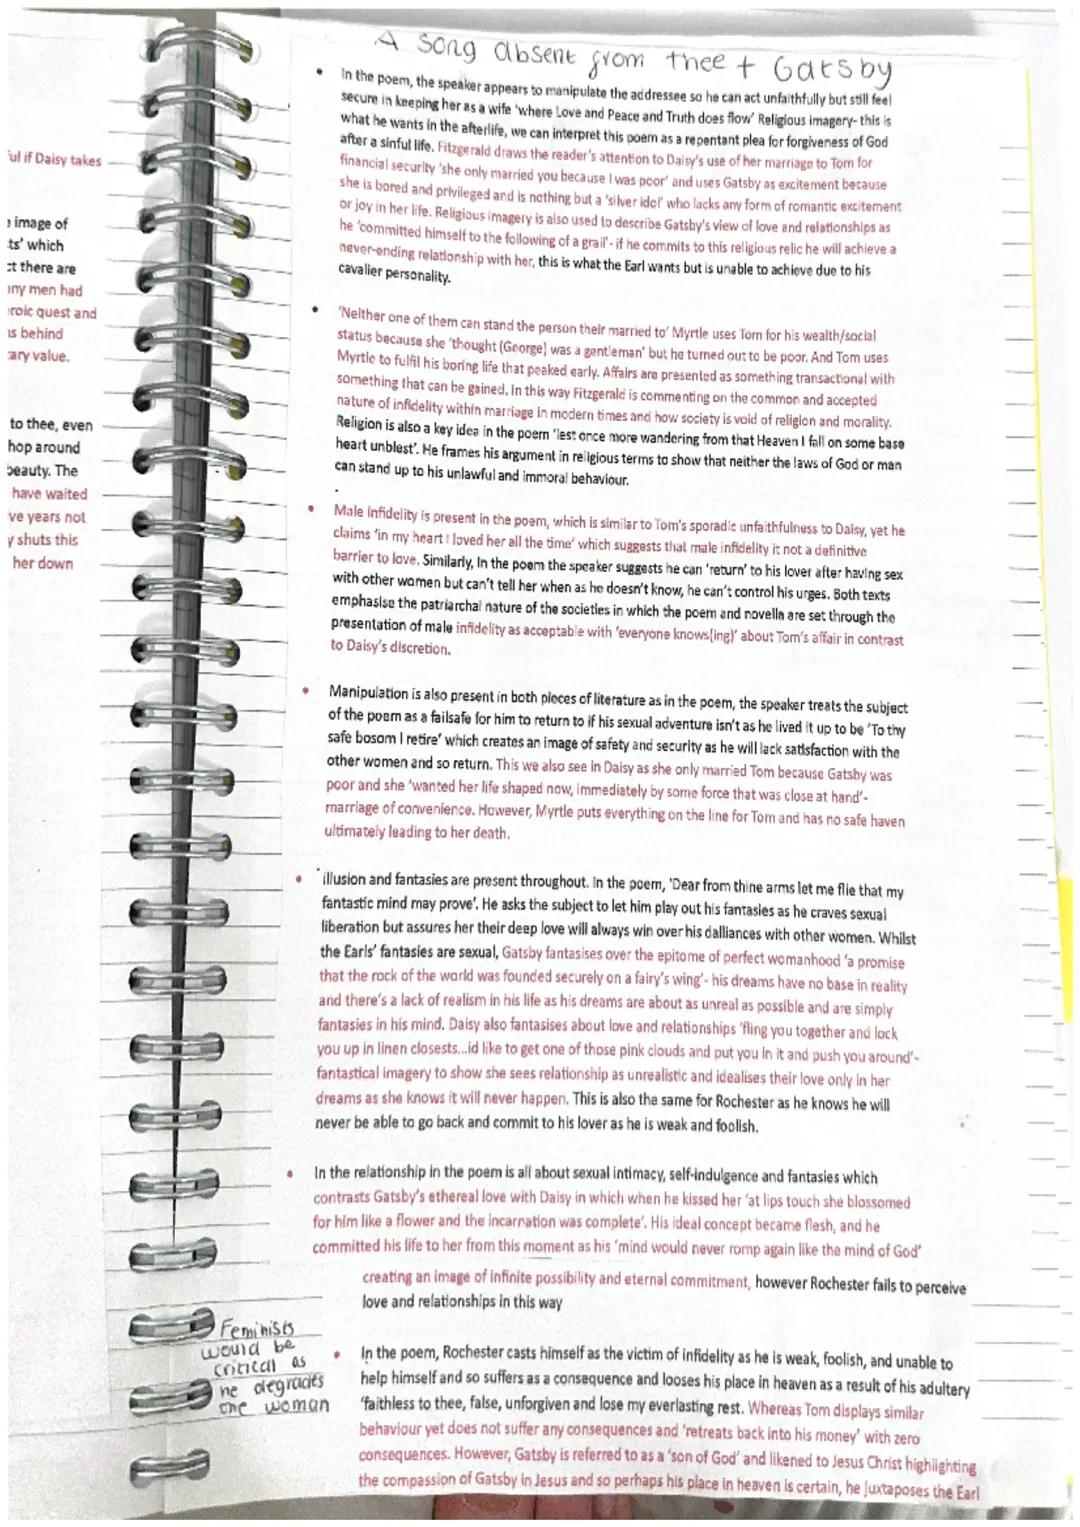 A song absent from thee + Gatsby
• In the poem, the speaker appears to manipulate the addressee so he can act unfaithfully but still feel
secure in keeping her as a wife 'where Love and Peace and Truth does flow' Religious imagery- this is
what he wants in the afterlife, we can interpret this poem as a repentant plea for forgiveness of God
after a sinful life. Fitzgerald draws the reader's attention to Daisy's use of her marriage to Tom for
financial security 'she only married you because I was poor' and uses Gatsby as excitement because
she is bored and privileged and is nothing but a 'silver idol' who lacks any form of romantic excitement
or joy in her life. Religious imagery is also used to describe Gatsby's view of love and relationships as
he 'committed himself to the following of a grail'- if he commits to this religious relic he will achieve a
never-ending relationship with her, this is what the Earl wants but is unable to achieve due to his
cavalier personality.
• 'Neither one of them can stand the person their married to' Myrtle uses Tom for his wealth/social
status because she 'thought (George) was a gentleman' but he turned out to be poor. And Tom uses
Myrtle to fulfil his boring life that peaked early. Affairs are presented as something transactional with
something that can be gained. In this way Fitzgerald is commenting on the common and accepted
nature of infidelity within marriage in modern times and how society is void of religion and morality.
Religion is also a key idea in the poem 'lest once more wandering from that Heaven I fall on some base
heart unblest'. He frames his argument in religious terms to show that neither the laws of God or man
can stand up to his unlawful and immoral behaviour.
• Male infidelity is present in the poem, which is similar to Tom's sporadic unfaithfulness to Daisy, yet he
claims 'in my heart I loved her all the time' which suggests that male infidelity it not a definitive
barrier to love. Similarly, In the poem the speaker suggests he can 'return' to his lover after having sex
with other women but can't tell her when as he doesn't know, he can't control his urges. Both texts
emphasise the patriarchal nature of the societies in which the poem and novella are set through the
presentation of male infidelity as acceptable with 'everyone knows(ing)' about Tom's affair in contrast
to Daisy's discretion.
• Manipulation is also present in both pieces of literature as in the poem, the speaker treats the subject
of the poem as a failsafe for him to return to if his sexual adventure isn't as he lived it up to be 'To thy
safe bosom I retire' which creates an image of safety and security as he will lack satisfaction with the
other women and so return. This we also see in Daisy as she only married Tom because Gatsby was
poor and she 'wanted her life shaped now, immediately by some force that was close at hand'-
marriage of convenience. However, Myrtle puts everything on the line for Tom and has no safe haven
ultimately leading to her death.
• illusion and fantasies are present throughout. In the poem, 'Dear from thine arms let me flie that my
fantastic mind may prove'. He asks the subject to let him play out his fantasies as he craves sexual
liberation but assures her their deep love will always win over his dalliances with other women. Whilst
the Earls' fantasies are sexual, Gatsby fantasises over the epitome of perfect womanhood 'a promise
that the rock of the world was founded securely on a fairy's wing'- his dreams have no base in reality
and there's a lack of realism in his life as his dreams are about as unreal as possible and are simply
fantasies in his mind. Daisy also fantasises about love and relationships 'fling you together and lock
you up in linen closests...id like to get one of those pink clouds and put you in it and push you around'-
fantastical imagery to show she sees relationship as unrealistic and idealises their love only in her
dreams as she knows it will never happen. This is also the same for Rochester as he knows he will
never be able to go back and commit to his lover as he is weak and foolish.
• In the relationship in the poem is all about sexual intimacy, self-indulgence and fantasies which
contrasts Gatsby's ethereal love with Daisy in which when he kissed her 'at lips touch she blossomed
for him like a flower and the incarnation was complete'. His ideal concept became flesh, and he
committed his life to her from this moment as his 'mind would never romp again like the mind of God'
creating an image of infinite possibility and eternal commitment, however Rochester fails to perceive
love and relationships in this way
• In the poem, Rochester casts himself as the victim of infidelity as he is weak, foolish, and unable to
help himself and so suffers as a consequence and looses his place in heaven as a result of his adultery
'faithless to thee, false, unforgiven and lose my everlasting rest. Whereas Tom displays similar
behaviour yet does not suffer any consequences and 'retreats back into his money' with zero
consequences. However, Gatsby is referred to as a 'son of God' and likened to Jesus Christ highlighting
the compassion of Gatsby in Jesus and so perhaps his place in heaven is certain, he juxtaposes the Earl
Feminists
would be
critical as
he degrades
the woman
if Daisy takes
image of
which
there are
men had
quest and
behind
value.
to thee, even
hop around
beauty. The
have waited
years not
shuts this
her down